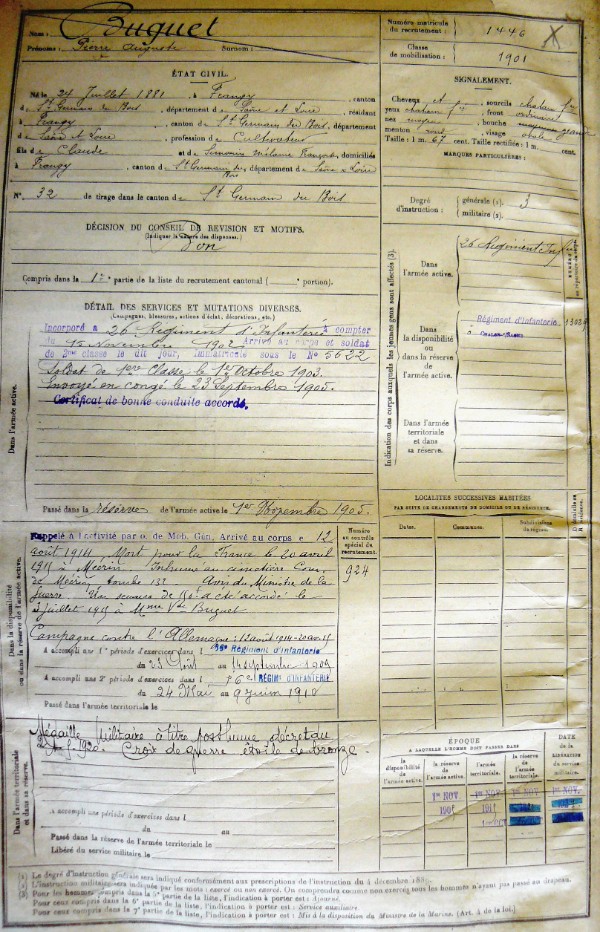 Nom : Buguet
Prénoms : Pierre Auguste Surnom :
Numéro matricule du recrutement : 1446
Classe de mobilisation : 1901
ÉTAT CIVIL.
Né le 24 Juillet 1881, à Frangy, canton
d St Germain du Bois, département d Saône et Loire, résidant
à Frangy, canton d St Germain du Bois, département
d Saône et Loire, profession de Cultivateur
fils d Claude et d domiciliés
à Frangy, canton d St Germain du Bois, département d Saône et Loire
N° 32 de tirage dans le canton de St Germain du Bois
SIGNALEMENT.
Cheveux et sourcils chatain
yeux chatain front ordinaire
nez moyen, bouche moyenne
menton rond, visage ovale
Taille : 1 m. 67 cent. Taille rectifiée : 1 m. cent.
MARQUES PARTICULIÈRES :
Degré d'instruction : générale (1). 3
militaire (2).
DÉCISION DU CONSEIL DE REVISION ET MOTIFS.
(Indiquer la nature des dispenses.)
Bon
Compris dans la 1re partie de la liste du recrutement cantonal ( portion).
DÉTAIL DES SERVICES ET MUTATIONS DIVERSES.
(Campagnes, blessures, actions d'éclat, décorations, etc.)
Incorporé à 26 Régiment d'Infanterie à compter
du 15 Novembre 1902 Arrivé au corps et soldat
de 2me classe le dit jour, immatriculé sous le N° 5622
Soldat de 1ère Classe le 1er Octobre 1903.
Envoyé en congé le 23 Septembre 1905.
Certificat de bonne conduite accordé.
Dans l'armée active.
Passé dans la réserve de l'armée active le 1er Novembre 1905.
Indication des corps auxquels les jeunes gens sont affectés (3).
Dans l'armée active.
26 Régiment
Dans la disponibilité ou dans la réserve de l'armée active.
Régiment d'Infanterie
à
Dans l'armée territoriale et dans sa réserve.
LOCALITÉS SUCCESSIVES HABITÉES
PAR SUITE DE CHANGEMENTS DE DOMICILE OU DE RÉSIDENCE.
Dates. Communes. Subdivisions de région.
Dans la disponibilité ou dans la réserve de l'armée active.
Rappelé à l'activité par o. de Mob. Gén. Arrivé au corps e 12
août 1914 Mort pour la France le 20 avril
1915 à Mécrin Inhumé au cimetière Com.
de Mécrin, tombe 132 Avis du Ministre de la
Guerre. Un secours de 150f a été accordé le
3 juillet 1915 à Mme Vve Buguet
Campagne contre l'Allemagne : 12 août 1914 - 20 avril 15
Numéro au contrôle spécial du recrutement.
924
A accompli une 1re période d'exercices dans l Régiment d'infanterie
du 23 Août au 14 septembre 1908
A accompli une 2e période d'exercices dans l RÉGIMt D'INFANTERIE
du 24 Mai au 9 juin 1910
Passé dans l'armée territoriale le
Médaille Militaire à titre posthume décret du
1920. Croix de guerre étoile de bronze.
Dans l'armée territoriale et dans sa réserve.
A accompli une période d'exercices dans l
du au
Passé dans la réserve de l'armée territoriale le
Libéré du service militaire le
ÉPOQUE
A LAQUELLE L'HOMME DOIT PASSER DANS
DATE DE LA LIBÉRATION DU SERVICE MILITAIRE.
la disponibilité de l'armée active.
la réserve de l'armée active.
l'armée territoriale.
la réserve de l'armée territoriale.
1er NOV. 1er NOV. 1er NOV. 1er NOV.
(1) Le degré d'instruction générale sera indiqué conformément aux prescriptions de l'instruction du 4 décembre 1889.
(2) L'instruction militaire sera indiquée par les mots : exercé ou non exercé. On comprendra comme non exercé tous les hommes n'ayant pas passé au drapeau.
(3) Pour les hommes compris dans la 5e partie de la liste, l'indication à porter est : Ajourné.
Pour ceux compris dans la 6e partie de la liste, l'indication à porter est : Service auxiliaire.
Pour ceux compris dans la 7e partie de la liste, l'indication à porter est : Mis à la disposition du Ministre de la Marine. (Art. 4 de la loi.)